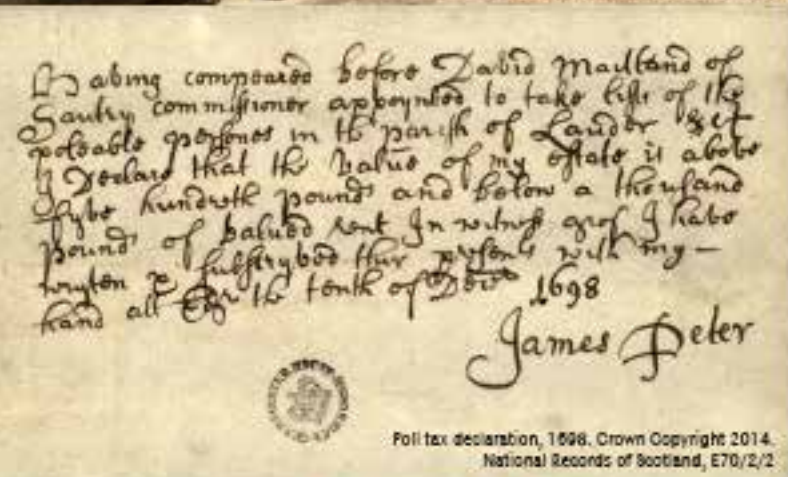 Having compeared before David Maitland of
Soutry commissioner appoynted to take lists of the
poleable persones in the parish of Lauder &ct
I Declare that the Value of my estate is above
fyve hundreth pound and below a thousand
pound of valued rent In witnes qrof I have
wryten & subscrybed thir presents with my —
hand att the tenth of Decr 1698
James Peter
Poll tax declaration, 1698. Crown Copyright 2014.
National Records of Scotland, E70/2/2